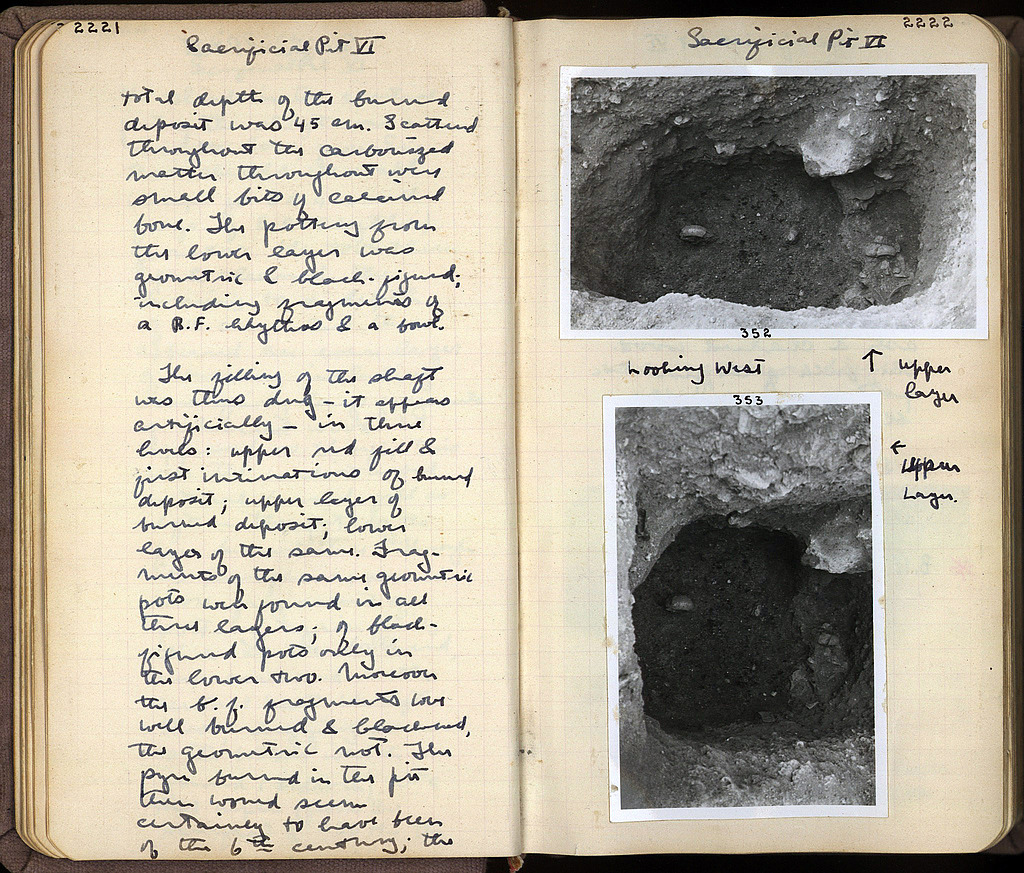 2221
Sacrificial Pit VI
total depth of the burned
deposit was 45 cm. Scattered
throughout the carbonized
matter throughout were
small bits of calcined
bone. The pottery from
the lower layer was
geometric & black-figured;
including fragments of
a B.F. rhyton & a bowl.
The filling of the shaft
was thus dug – it appears
artificially – in three
levels: upper red fill &
just intimations of burned
deposit; upper layer of
burned deposit; lower
layer of the same. Frag-
ments of the same geometric
pots were found in all
three layers; of black-
figured pots only in
the lower two. Moreover
the b.f. fragments were
well burned & blackened,
the geometric not. The
pyre burned in the pit
then would seem
certainly to have been
of the 6th century; the
2222
Sacrificial Pit VI
352
Looking West
↑ upper
layer
353
← Upper
Layer.